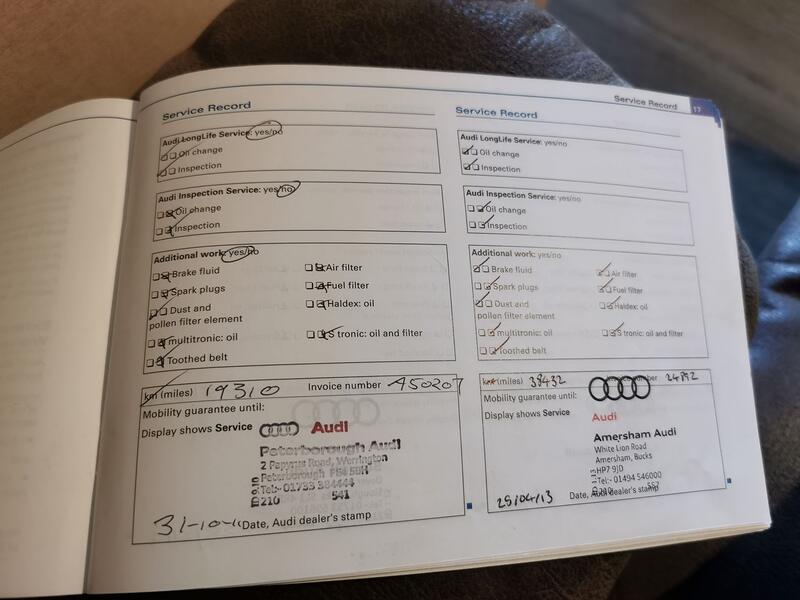 Service Record
17
Service Record
Audi LongLife Service: yes/no
Oil change
Inspection
Audi Inspection Service: yes/no
Oil change
Inspection
Additional work: yes/no
Brake fluid
Air filter
Spark plugs
Fuel filter
Dust and
pollen filter element
Haldex: oil
multitronic: oil
S tronic: oil and filter
Toothed belt
km (miles) 19310 Invoice number A50207
Mobility guarantee until:
Display shows Service
Audi
Peterborough Audi
2 Papyrus Road, Werrington
Peterborough PE4 5BH
Tel:- 01733 384444
210 541
31-10-11 Date, Audi dealer's stamp
Service Record
Audi LongLife Service: yes/no
Oil change
Inspection
Audi Inspection Service: yes/no
Oil change
Inspection
Additional work: yes/no
Brake fluid
Air filter
Spark plugs
Fuel filter
Dust and
pollen filter element
Haldex: oil
multitronic: oil
S tronic: oil and filter
Toothed belt
km (miles) 38432 24892
Mobility guarantee until:
Display shows Service
Audi
Amersham Audi
White Lion Road
Amersham, Bucks
HP7 9JD
Tel:- 01494 546000
25/04/13 Date, Audi dealer's stamp